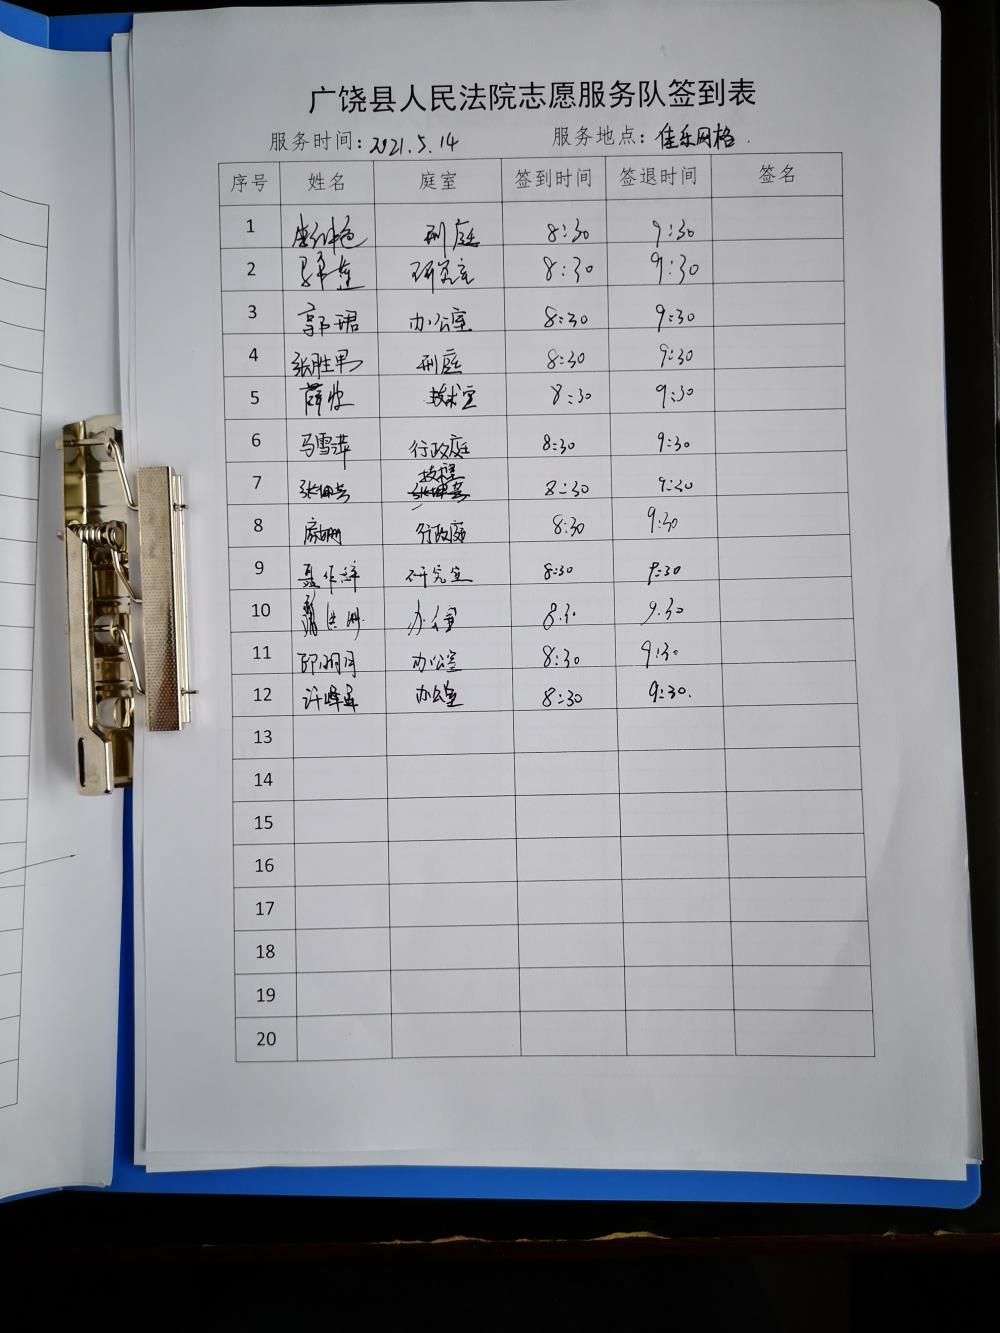 广饶县人民法院志愿服务队签到表
服务时间：2021.5.14 服务地点：佳乐网格.
序号 姓名 庭室 签到时间 签退时间 签名
1 刑庭 8:30 9:30
2 研究室 8:30 9:30
3 郭珺 办公室 8:30 9:30
4 张胜男 刑庭 8:30 9:30
5 技术室 8:30 9:30
6 马雪萍 行政庭 8:30 9:30
7 8:30 9:30
8 行政庭 8:30 9:30
9 研究室 8:30 9:30
10 办公室 8:30 9:30
11 办公室 8:30 9:30
12 办公室 8:30 9:30.
13
14
15
16
17
18
19
20